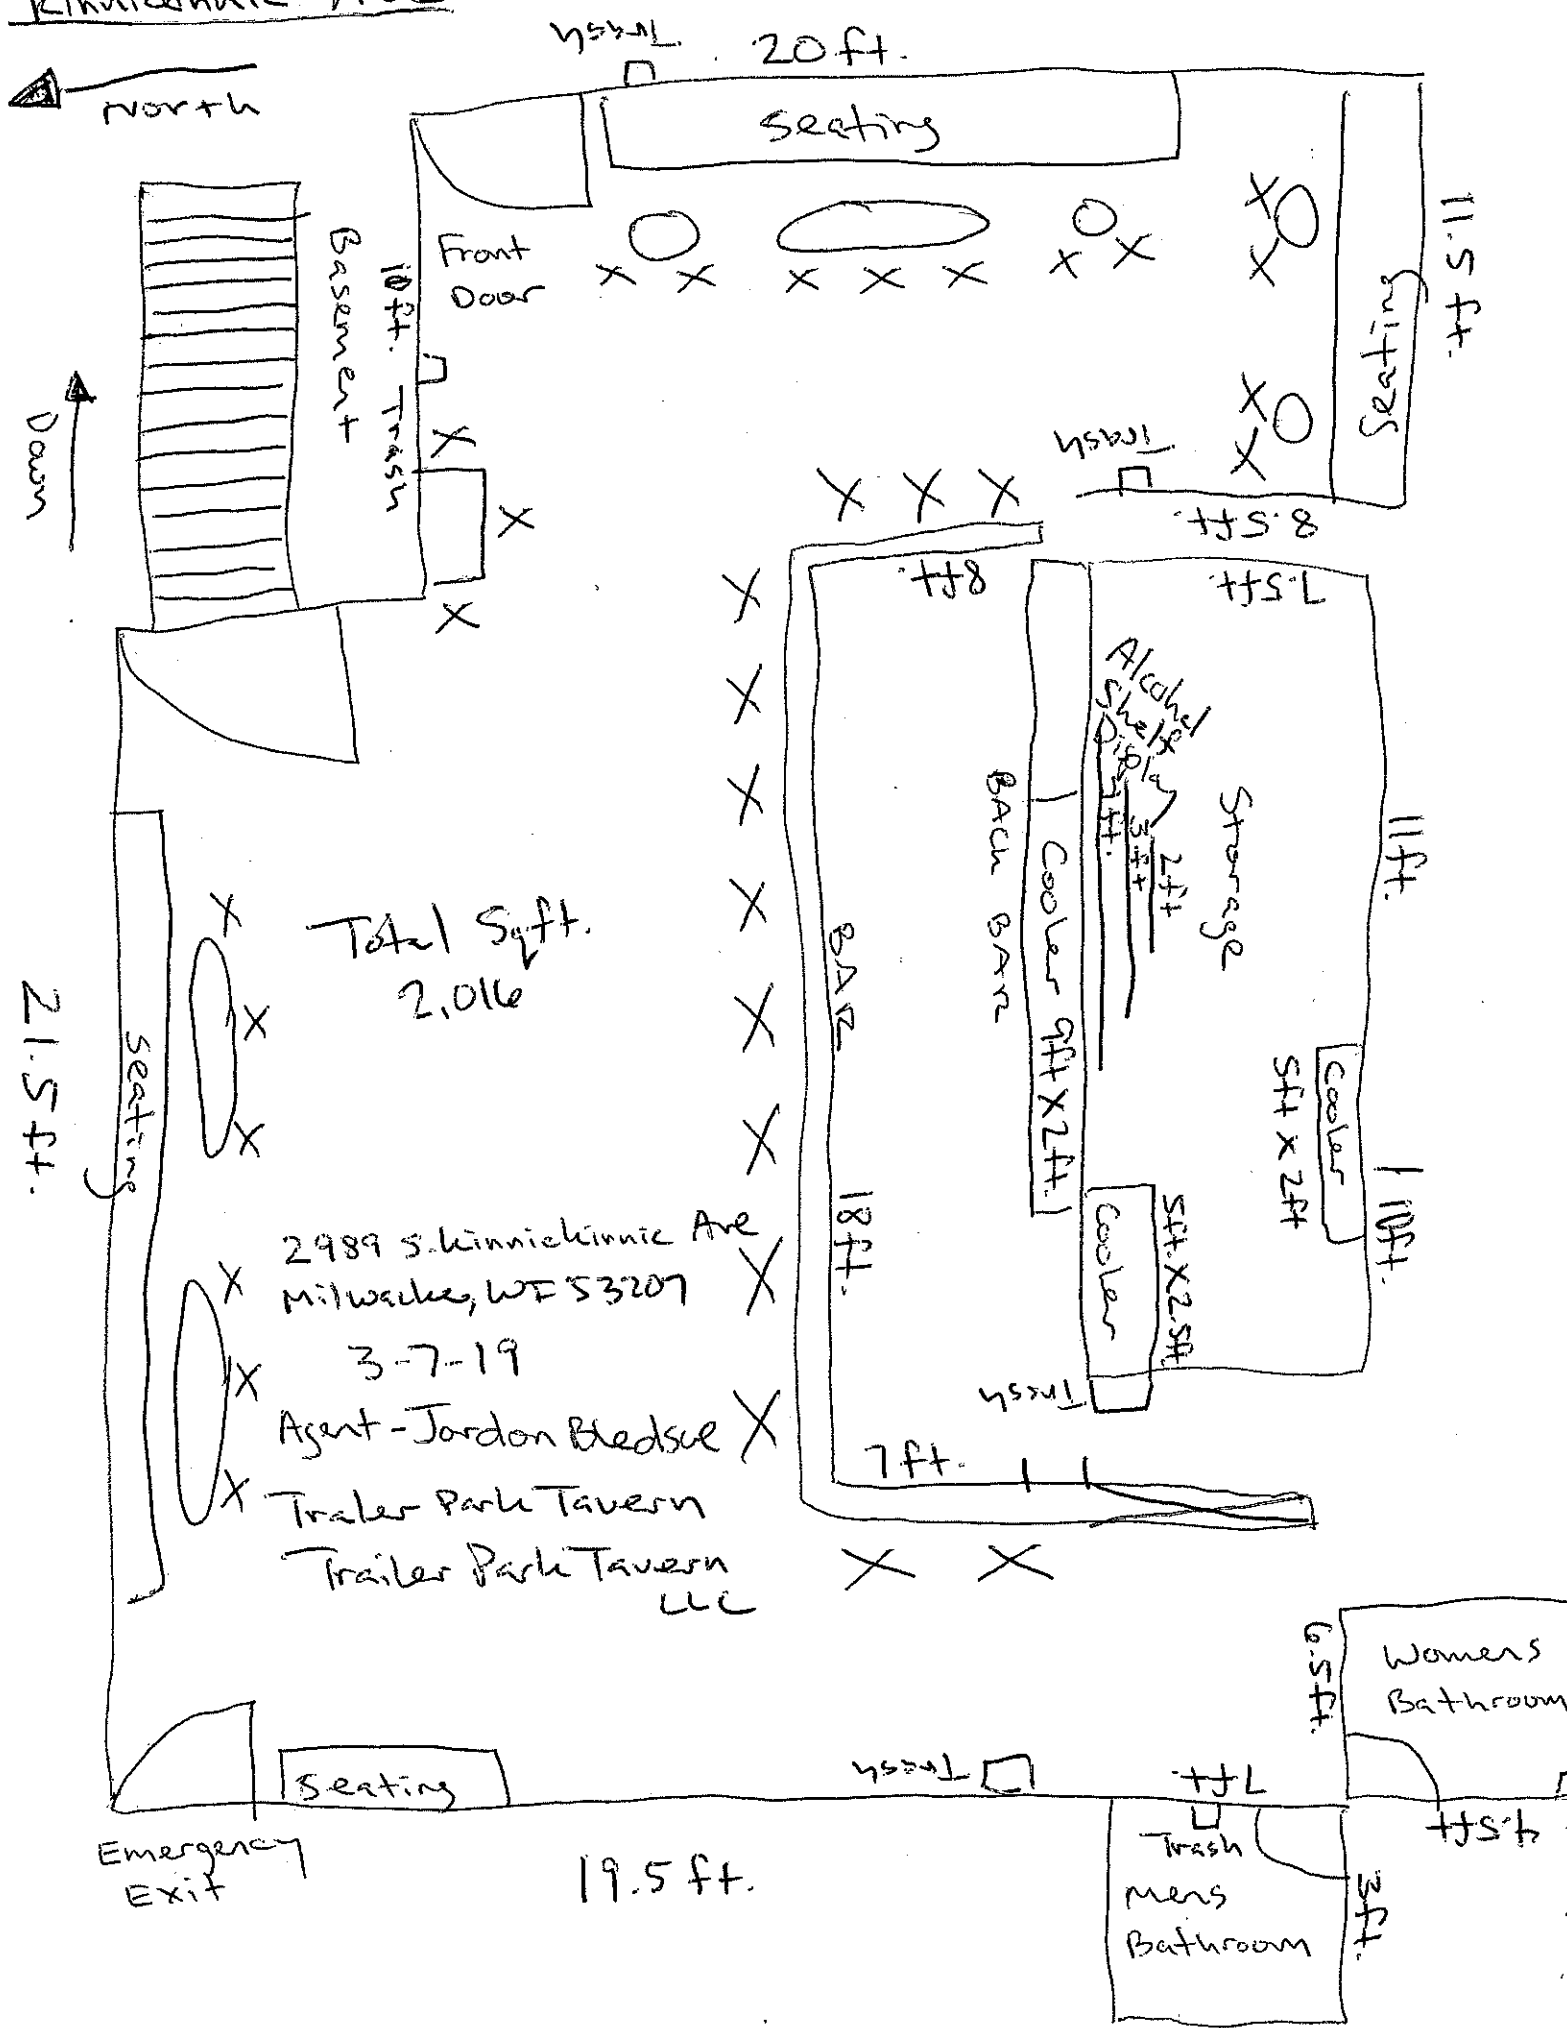 Kinnickinnic Ave
North
Trash
20 ft.
Seating
11.5 ft.
Seating
Front
Door
Basement
10 ft. Trash
Down
Trash
8.5 ft.
8 ft.
7.5 ft.
Alcohol
Shelf
Display
3 ft
2 ft
Storage
11 ft.
BACK BAR
Cooler 9ft X 2ft.
BAR
18 ft.
Cooler
5ft X 2ft
10ft.
Cooler
5ft. X 2.5ft
Trash
7 ft.
Total Sqft.
2,016
21.5 ft.
Seating
2989 S. Kinnickinnic Ave
Milwaukee, WI 53207
3-7-19
Agent - Jordon Bledsoe
Traler Park Tavern
Trailer Park Tavern
LLC
6.5 ft.
Womens
Bathroom
Seating
Trash
7 ft.
4.5 ft
Emergency
Exit
19.5 ft.
Trash
Mens
Bathroom
3 ft.